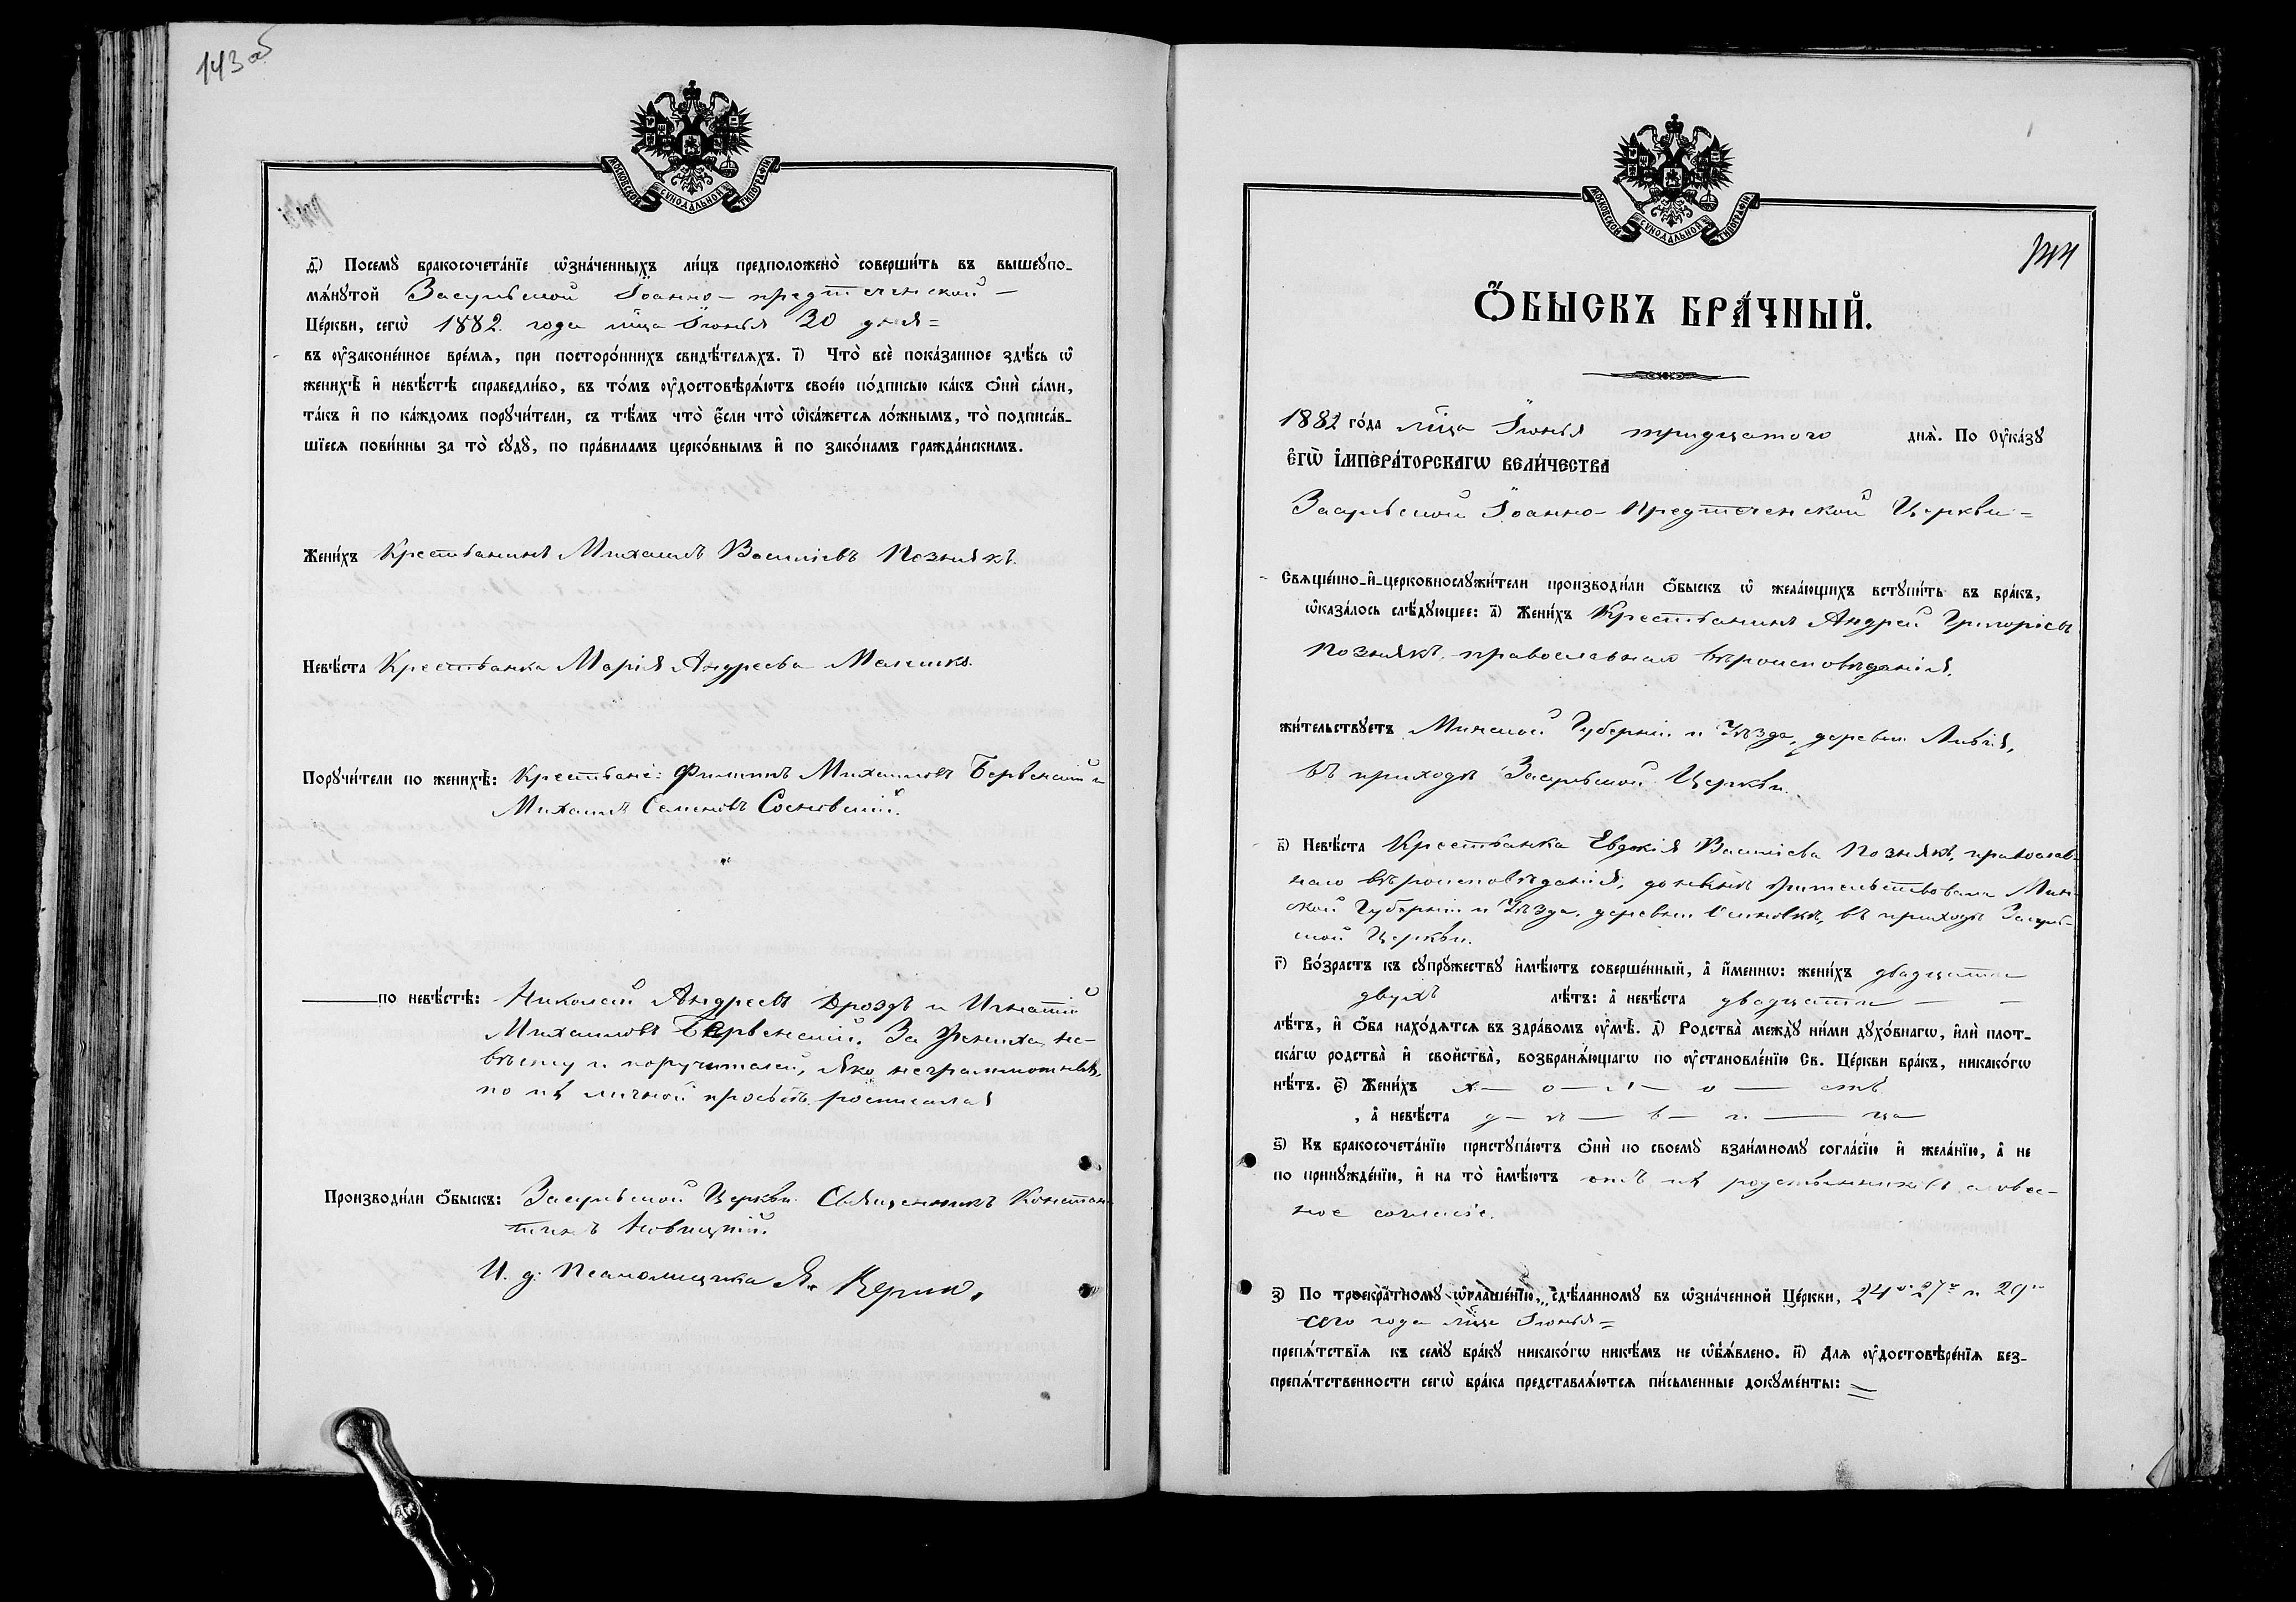 143 об
МОСКОВСКОЙ СУНОДАЛЬНОЙ ТИПОГРАФІИ
ѳ҃) Посемꙋ̀ бракосочета́нїе ѡ҆зна́ченныхъ ли́цъ предположено̀ соверши́ть въ вышеꙋпо-
мѧ́нꙋтой Засульской Іоанно-предтеченской —
Це́ркви, сегѡ̀ 1882 года м̃ца Іюня 30 дня=
въ ᲂу҆законе́нное вре́мѧ, при посторо́ннихъ свидѣ́телѧхъ. і҃) Что̀ всѐ пока́занное здѣ́сь ѡ҆
женихѣ̀ и҆ невѣ́стѣ справедли́во, въ то́мъ ᲂу҆достовѣрѧ́ютъ свое́ю по́дписью ка́къ ѻ҆нѝ са́ми,
та́къ и҆ по ка́ждомъ порꙋчи́тели, съ тѣ́мъ что̀ є҆́сли что̀ ѡ҆ка́жетсѧ ло́жнымъ, то̀ подписа́в-
шїесѧ пови́нны за то̀ сꙋдꙋ̀, по пра́виламъ церко́внымъ и҆ по зако́намъ гражда́нскимъ.
Жени́хъ Крестьянинъ Михаилъ Василіевъ Познякъ.
Невѣ́ста Крестьянка Марія Андреева
Порꙋчи́тели по женихѣ̀: Крестьяне: Филиппъ Михаиловъ Бервенскій и
Михаилъ Семеновъ Сосновскій.
по невѣ́стѣ: Николай Андреевъ Дроздъ и Игнатій
Михаиловъ Бервенскій. За жениха, не-
вѣсту и поручителей, яко неграмотныхъ,
по их личной просьбѣ росписался
Производи́ли ѻ҆́быскъ: Засульской Церкви Священникъ Констан-
тинъ Новицкій.
И. д. Псаломщика Я.
144
МОСКОВСКОЙ СУНОДАЛЬНОЙ ТИПОГРАФІИ
Ѻ҆́БЫСКЪ БРА́ЧНЫЙ.
1882 го́да м̃ца Іюня тридцатого днѧ̀. По ᲂу҆ка́зꙋ
Є҆ГѠ̀ И҆МПЕРА́ТОРСКАГѠ ВЕЛИ́ЧЕСТВА
Засульской Іоанно-Предтеченской Церкви=
Свѧще́нно-и҆-церковнослꙋжи́тели производи́ли ѻ҆́быскъ ѡ҆ жела́ющихъ встꙋпи́ть въ бра́къ,
ѡ҆каза́лось слѣ́дꙋющее: а҃) Жени́хъ Крестьянинъ Андрей Григоріевъ
Познякъ, православнаго вѣроисповѣданія,
жи́тельствꙋетъ Минской Губерніи и Уѣзда, деревни Ливія,
въ приходѣ Засульской Церкви.
в҃) Невѣ́ста Крестьянка Евдокія Василіева Познякъ, православ-
наго вѣроисповѣданія, донынѣ жительствовала Мин-
ской Губерніи и Уѣзда, деревни Осиновкѣ, въ приходѣ Засуль-
ской Церкви.
г҃) Во́зрастъ къ сꙋпрꙋ́жествꙋ и҆мѣ́ютъ соверше́нный, а҆ и҆́меннѡ: жени́хъ двадцати
двухъ лѣ́тъ: а҆ невѣ́ста двадцати — —
лѣ́тъ, и҆ ѻ҆́ба нахо́дѧтсѧ въ здра́вомъ ᲂу҆мѣ̀. д҃) Родства̀ междꙋ̀ ни́ми дꙋхо́внагѡ, и҆лѝ плот-
ска́гѡ родства̀ и҆ свойства̀, возбранѧ́ющагѡ по ᲂу҆становле́нїю Св. Це́ркви бра́къ, никако́гѡ
нѣ́тъ. є҃) Жени́хъ х— о —л— о — стъ
, а҆ невѣ́ста д — ѣ — в — и — ца
ѕ҃) Къ бракосочета́нїю пристꙋпа́ютъ ѻ҆нѝ по своемꙋ̀ взаи́мномꙋ согла́сїю и҆ жела́нїю, а҆ не
по принꙋжде́нїю, и҆ на то̀ и҆мѣ́ютъ отъ их родственниковъ словес-
ное согласіе.
з҃) По троекра́тномꙋ ѡ҆глаше́нїю, сдѣ́ланномꙋ въ ѡ҆зна́ченной Це́ркви, 24го 27го и 29го
сего года м̃ца Іюня=
препѧ́тствїѧ къ семꙋ̀ бра́кꙋ никако́гѡ никѣ́мъ не ѡ҆бъѧ́влено. и҃) Длѧ ᲂу҆достовѣре́нїѧ без-
препѧ́тственности сегѡ̀ бра́ка представлѧ́ютсѧ пи́сьменные докꙋме́нты: =